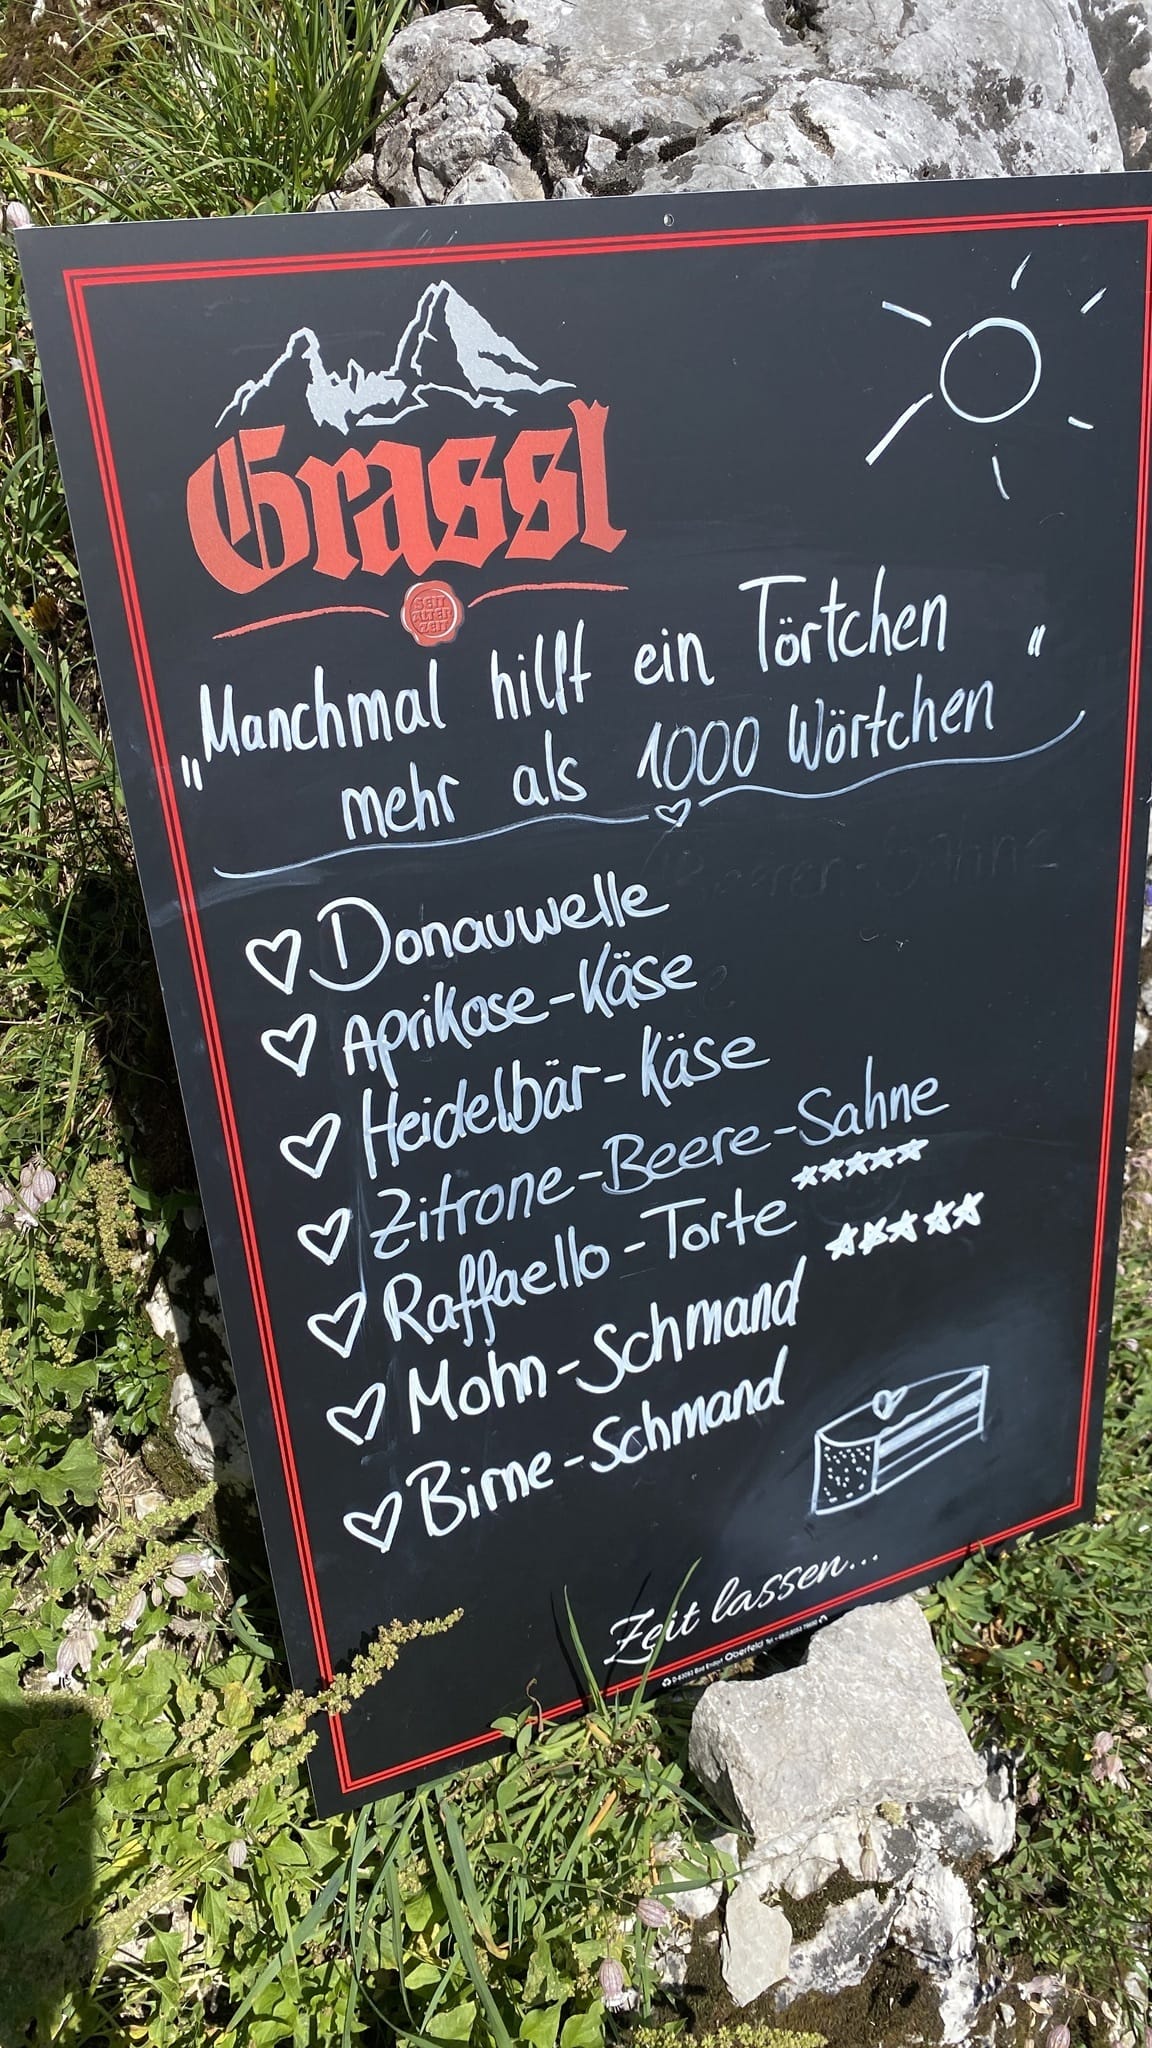 Grassl
SEIT
ALTER
ZEIT
„Manchmal hilft ein Törtchen
mehr als 1000 Wörtchen"
Donauwelle
Aprikose-Käse
Heidelbär-Käse
Zitrone-Beere-Sahne
Raffaello-Torte
Mohn-Schmand
Birne-Schmand
Zeit lassen...
Oberfeld